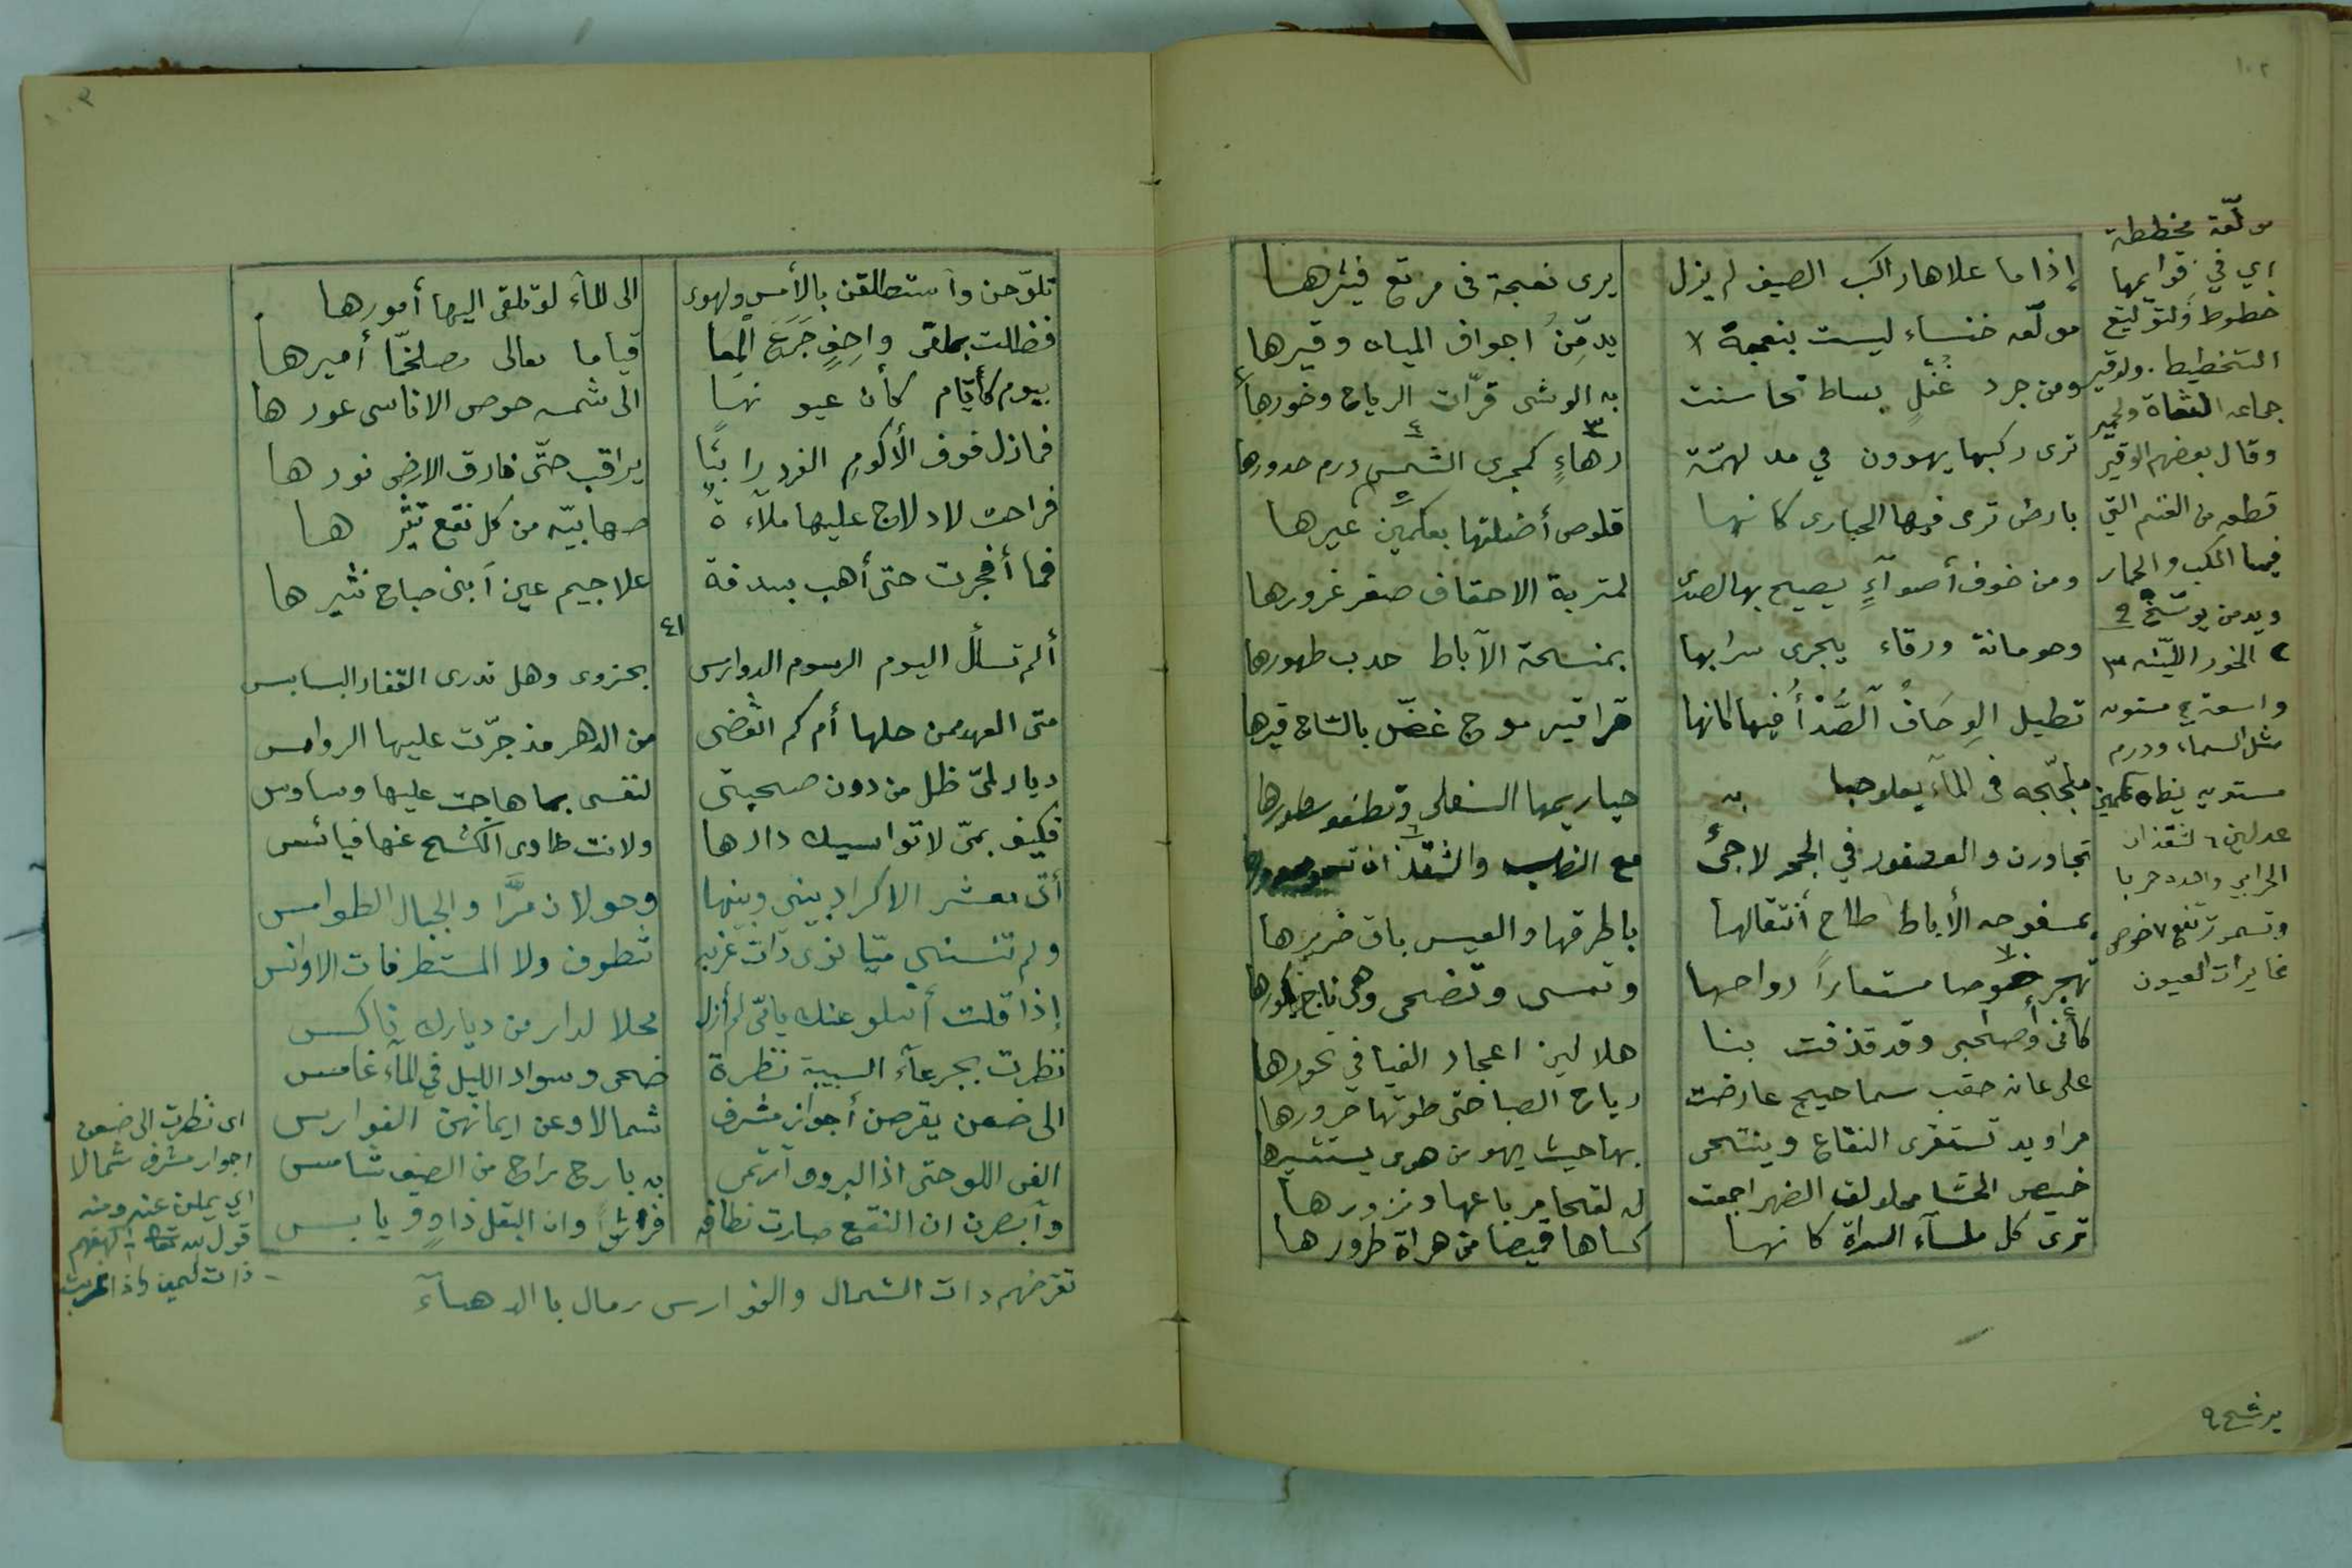 ١٠٢
إذا ما علاها راكب الصيف لم يزل يرى نعجة في مرتع فيثيرها
مولّعه خنساء ليست بنعجة لا يدمّن اجواف المياه وقيرها
ومن جرد غُفْلٍ بساط تحاسنت به الوشى قرّات الرياح وخورها
ترى ركبها يهوون في مدلهمّة رهاءٍ كمجرى الشمس درم حدورها
بارض ترى فيها الحبارى كانها قلوص أضلتها بعكمين عيرها
ومن خوف أصوآءٍ يصيح بها الصدى لمتربة الاحقاف صفر غرورها
وحومانة ورقاء يجرى سرابها بمنسحة الآباط حدب ظهورها
تطيل الوِحَافُ الصُّدْأُ فيها كانها قراقير موج غصّ بالساج قيرها
ملجّجه في المآء يعلو حبابه حيازيمها السفلى وتطفو سطورها
تجاورن والعصفور في الجحر لاجئ مع الضب والشقذان
بمسفوحه الأباط طاح أنتقالها باطرقها والعيس باق ضريرها
تهجر خوصا مستعاراً رواحها وتمسى وتضحى وهى ناج بكورها
كأنى وأصحابى وقد قذفت بنا هلالين اعجاز الفيافي نحورها
على عانه حقب سماحيج عارضت رياح الصبا حتى طوتها حرورها
مراويد تستقرى النقاع وينتحى بها حيث يهوى من هوى يستثيرها
خميص الحشا محلولق الضهر اجمعت له لقحا مرباعها ونزورها
ترى كل ملسآء السراة كانها كساها قميصا من هراة طرورها
مولّعة مخططة
اي في قوايمها
خطوط والتوليع
التخطيط. والوقير
جماعه الشاة والحمير
وقال بعضهم الوقير
قطعه من الغنم التي
فيها الكلب والحمار
ويدمن يوسّخ
٢ الخور الليّنه ٣
واسعة ٤ مستويه
مثل السماء ودرم
مستويه ٥ عكمين
عدلين ٦ الشقذان
الحرابي واحده حربا
وتسمو ترتفع ٧ خوص
غايرات العيون
يرشح
١٠٣
تلوّحن وآستطلقن بالأمس والهوى الى المآء لو تلقى اليها أمورها
فظالت بملقى واحِفٍ جَرَعَ المِعا قياما تفالى مصلخمّا أميرها
بيوم كأيّام كأن عيونها الى شمسه حوص الاناسى عورها
فمازل فوق الأكوم الفرد رابئًا يراقب حتّى فارق الارض نورها
فراحت لادلاج عليها ملآءةٌ صهابيّه من كل نقع تثيرها
فما أفجرت حتى أهب بسدفة علاجيم عين آبنى صباح نثيرها
٤١
ألم تسأل اليوم الرسوم الدوارس بحزوى وهل تدرى القفار البسابس
متى العهد ممن حلها أم كم انقضى من الدهر مذ جرّت عليها الروامس
ديار لمىّ ظل من دون صحبتى لنفسى بما هاجت عليها وساوس
فكيف بمىّ لا تواسيك دارها ولا انت طاوى الكشح عنها فيائس
أتى معشر الاكراد بينى وبينها وحولان مرّا والجبال الطوامس
ولم تنسنى ميّا نوى ذات غربه شطوف ولا المستطرفات الاوانس
إذا قلت أسلو عنك يامىّ لم أزل محلا لدار من ديارك ناكس
نظرت بجرعآء السبيبة نظرة ضحى وسواد الليل في المآء غامس
الى ضعن يقرضن أجواز مشرف شمالا وعن ايمانهن الفوارس
الفن اللو حتى اذا البروق آرتمى به بارح راح من الصيف شامس
وآبصرن ان النقع صارت نطافه فراشا وان البقل ذاوٍ ويابس
اى نظرت الى ضعن
اجواز مشرف شمالا
اي يملن عنه ومنه
قول الله تعالى
ذات اليمين واذا غربت
تقرضهم ذات الشمال والفوارس رمال با الدهنآء